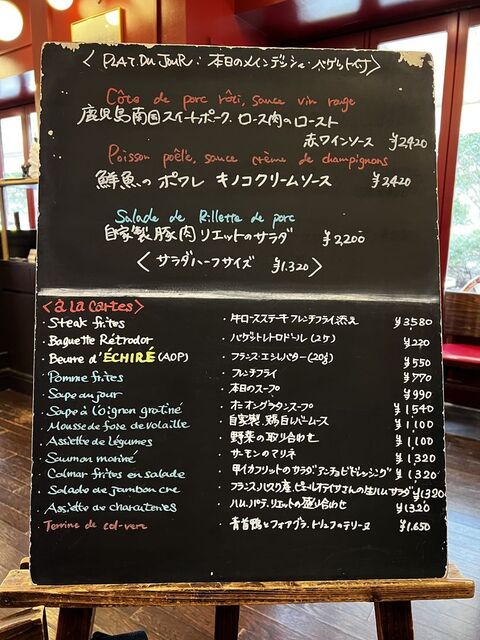 < PLAT DU JOUR : 本日のメインディッシュ・バゲット付 >
Côte de porc rôti, sauce vin rouge
鹿児島南国スイートポーク、ロース肉のロースト
赤ワインソース ¥2,420
Poisson poêlé, sauce crème de champignons
鮮魚のポワレ キノコクリームソース ¥2,420
Salade de Rillette de porc
自家製豚肉リエットのサラダ ¥2,200
< サラダハーフサイズ ¥1,320 >
< à la Cartes >
・Steak frites ・牛ロースステーキ フレンチフライ添え ¥3,580
・Baguette Rétrodor ・バゲットレトロドール (2ケ) ¥220
・Beurre d'ÉCHIRÉ (AOP) ・フランス・エシレバター (20g) ¥550
・Pomme frites ・フレンチフライ ¥770
・Supe au jour ・本日のスープ ¥990
・Supe à l'oignon gratiné ・オニオングラタンスープ ¥1,540
・Mousse de foie de volaille ・自家製、鶏白レバームース ¥1,100
・Assiette de légumes ・野菜の取り合わせ ¥1,100
・Saumon mariné ・サーモンのマリネ ¥1,320
・Calmar frites en salade ・甲イカフリットのサラダ アンチョビドレッシング ¥1,320
・Salade de jambon cru ・フランス、バスク産、ピエールオテイザさんの生ハムサラダ ¥1,320
・Assiette de charcuteries ・ハム、パテ、リエットの盛り合わせ ¥1,320
・Terrine de col-vert ・青首鴨とフォアグラ、トリュフのテリーヌ ¥1,650